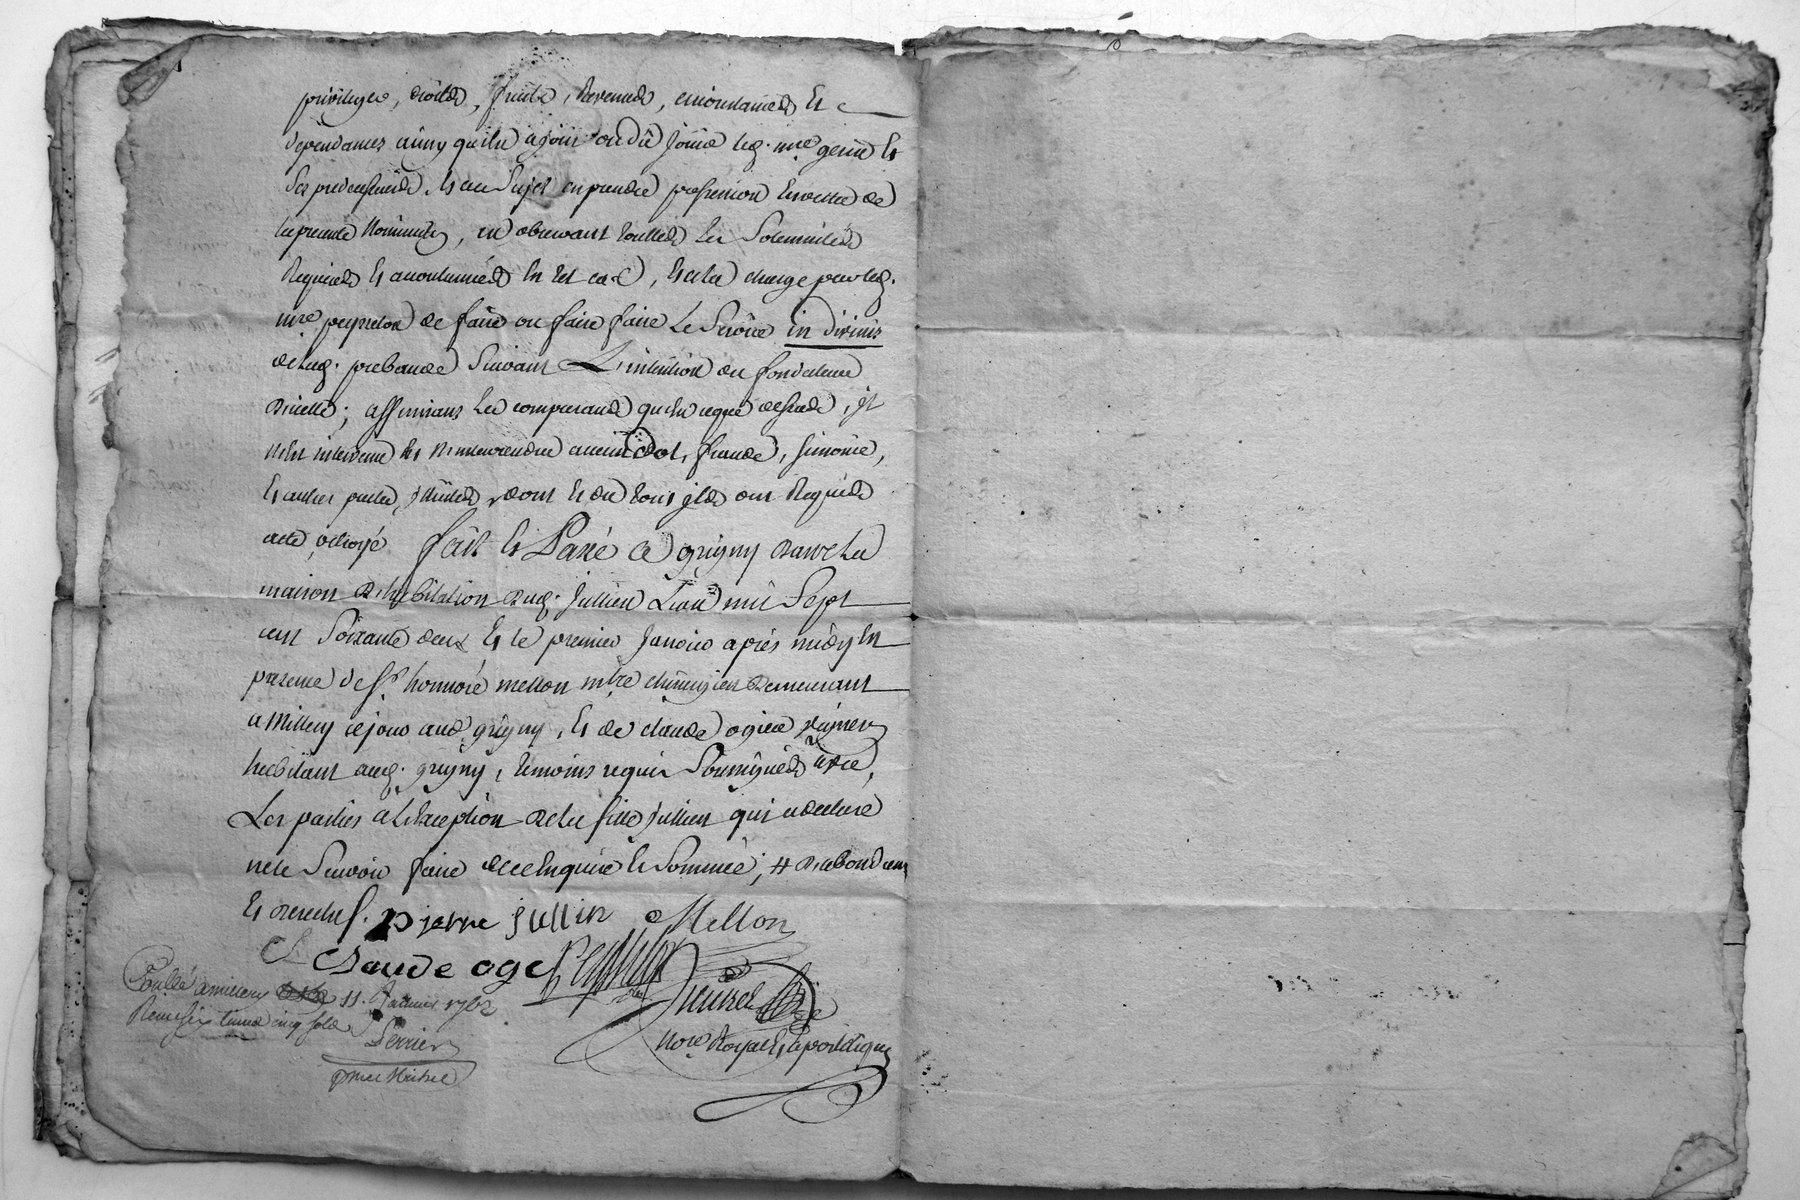 privileges, droits, fruits, Revenus, emoluments Et
dependances ainsy qu'ils a joui ou dû jouir led. mre genin Et
Ses predecesseurs, Et au Sujet en prendre possession En vertu de
la presente Nomination, en observant touttes Les Solemnités
Requises Et accoutumées En tel cas, Et a la charge par led.
mre peysselon de faire ou faire faire Le Service in divinis
de lad. prebande Suivant L'intention du fondateur
d'icelle; affirmants Les comparants qu'en ce que dessus, il
n'est intervenu Et n'interviendra aucun dol, fraude, simonie,
Et autres pactes illicites, dont Et du tout ils ont Requis
acte octroyé fait Et Passé a grigny dans La
maison d'habitation dud. Jullien L'an mil Sept
cent Soixante deux Et le premier Janvier après midy En
presence de sr. honnoré mellon mtre chirurgien demeurant
a Millery ce jour aud. grigny, Et de claude ogier
habitant aud. grigny, temoins requis Soussignés avec
Les parties a L'Exception de la fille Jullien qui a declaré
ne le Savoir faire de ce Enquise Et Sommée; # d'abondant
Et de rechef. pierre jullin Mellon
Claude oge Peysselon
Conllé a millery 11. Janvier 1762
Reçu six livres cinq sols
Perrier
Nore Royal Et apostolique